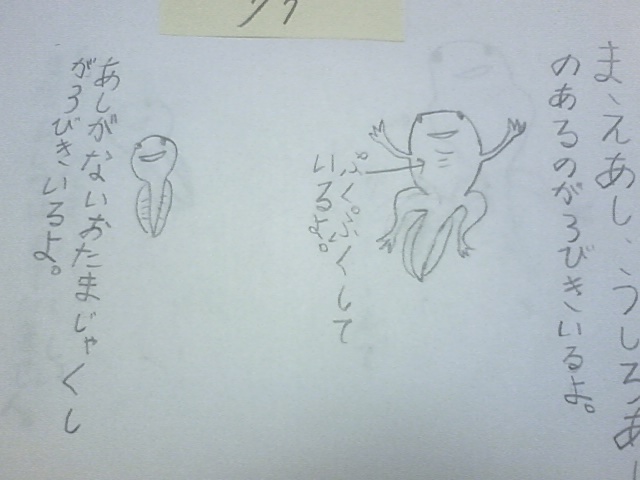 まえあし、うしろあし
のあるのが3びきいるよ。
ぷくぷくして
いるよ。
あしがないおたまじゃくし
が3びきいるよ。